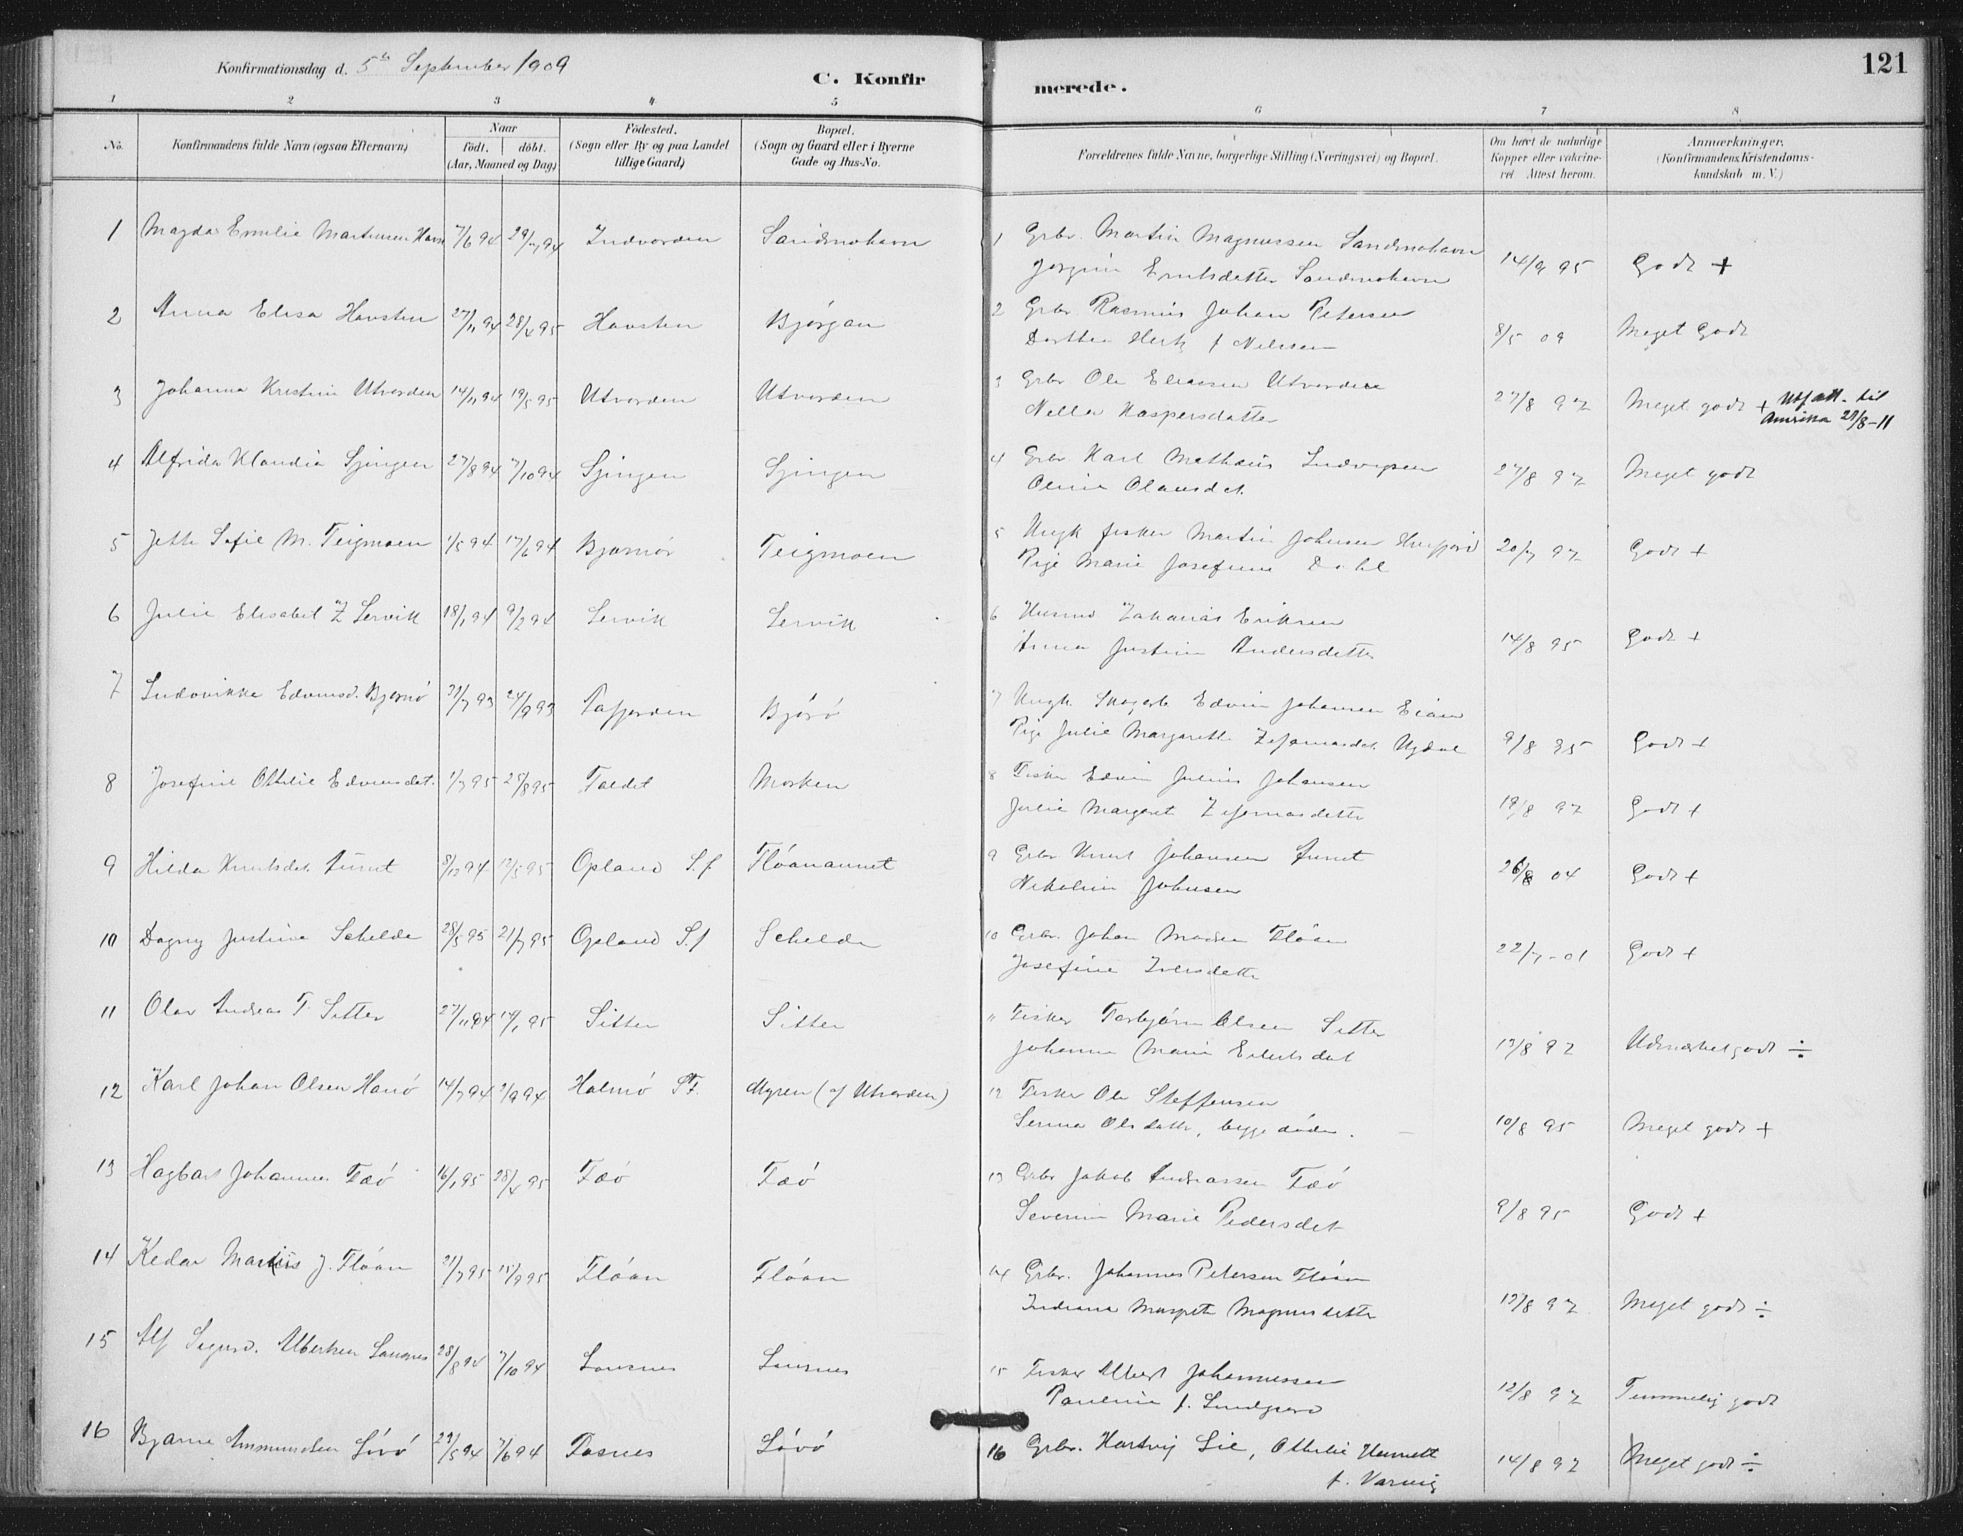 Konfirmationsdag d. 5te September 1909
C. Konfir
merede.
121
1 2 3 4 5 6 7 8
No.
Konfirmandens fulde Navn (ogsaa Efternavn)
Naar
födt. döbt.
(Aar, Maaned og Dag)
Födested.
(Sogn eller By og paa Landet
tillige Gaard)
Bopæl.
(Sogn og Gaard eller i Byerne
Gade og Hus-No.
Forældrenes fulde Navne, borgerlige Stilling (Næringsvei) og Bopæl.
Om havt de naturlige
Kopper eller vakcine-
ret Attest herom.
Anmærkninger.
(Konfirmandens Kristendoms-
kundskab m. V.)
1 Magda Emilie Martinsen 7/6 94 29/7 94 Indvorden Sandnohavn
1 Grbr. Martin Magnussen Sandnohavn 14/9 95 Godt +
Jørgine Sandnohavn
2 Anna Elisa Havsten 27/11 94 28/4 95 Havsten Bjørgan
2 Grbr. Rasmus Johan Petersen 8/5 09 Meget Godt
f Nilssen
3 Johanna Kristine Utvorden 14/11 94 19/5 95 Utvorden Utvorden
3 Grbr Ole Eliassen Utvorden 27/8 97 Meget godt + Utfatt. til
Nella Kaspersdatter Amerika 29/8-11
4 Alfrida Klaudia Gjingen 27/8 94 7/10 94 Gjingen Gjingen
4 Grbr Karl Mathæus Ludvigsen 27/8 97 Meget godt
Oline Olausdet.
5 Jette Sofie M. Teigmoen 1/5 94 17/6 94 Bjørnør Teigmoen
5 Ungk fisker Martin Johnsen 20/7 97 Godt +
Pige Marie Josefine Dahl
6 Julie Elisabet Z Lervik 18/1 94 9/2 94 Lervik Lervik
6 Husmd Zakarias Eriksen 14/8 95 Godt +
Anna Justine Andersdetter
7 Ludovikke Edvinsd. Bjørnø 24/9 93 Pafjorden Bjørø
7 Ungk Edvin Johansen Eian
Pige Julie Margarethe Zefaniasdet. 9/8 95 Godt +
8 Josefine Othilie Edvinsdet. 1/7 95 25/8 95 Faldet Morken
8 Fisker Edvin Julius Johansen
Julie Margaret Zefaniasdetter 19/8 97 Godt +
9 Hilda Knutsdet. Aunet 8/12 94 12/5 95 Opland S.f Fløanaunet
9 Grbr Knut Johansen Aunet 26/8 04 Godt +
Nikoline Johnsen
10 Dagny Justine Schelde 28/5 95 21/7 95 Opland S.f Schelde
10 Grbr. Johan Madsen Fløan 22/7-01 Godt +
Josefine Iversdetter
11 Olav Andreas T. Sitter 27/11 94 14/1 95 Sitter Sitter
11 Fisker Torbjørn Olsen Sitter 13/8 97 Udmærketgodt ÷
Johanna Marie
12 Karl Johan Olsen Hanø 14/7 94 2/9 94 Halmø S.F. Myren (af Utvorden)
12 Fisker Ole Steffensen
Serina Olsdatter, begge døde. 10/8 95 Meget godt +
13 Hagbart Johannes Fæø 16/1 95 28/4 95 Fæø Fæø
13 Grbr Jakob Andreassen Fæø
Severine Marie Pedersdet 9/8 95 Godt +
14 Kedar Martin J. Fløan 21/7 95 15/9 95 Fløan Fløan
14 Grbr. Johannes Petersen Fløan
Indiana Margrete Magnusdetter 13/8 97 Meget godt ÷
15 Alf Sigurd. Albertsen Lausnes 28/8 94 7/10 94 Lausnes Lausnes
15 Fisker Albert Johannessen
Pauline f. Lundgaard 12/8 97 Temmelig godt
16 Bjarne Ammundsen Løvø 29/5 94 7/6 94 Fosnes Løvø
16 Grbr. Hartvig Lie, Othilie 14/8 97 Meget godt ÷
f. Varvig